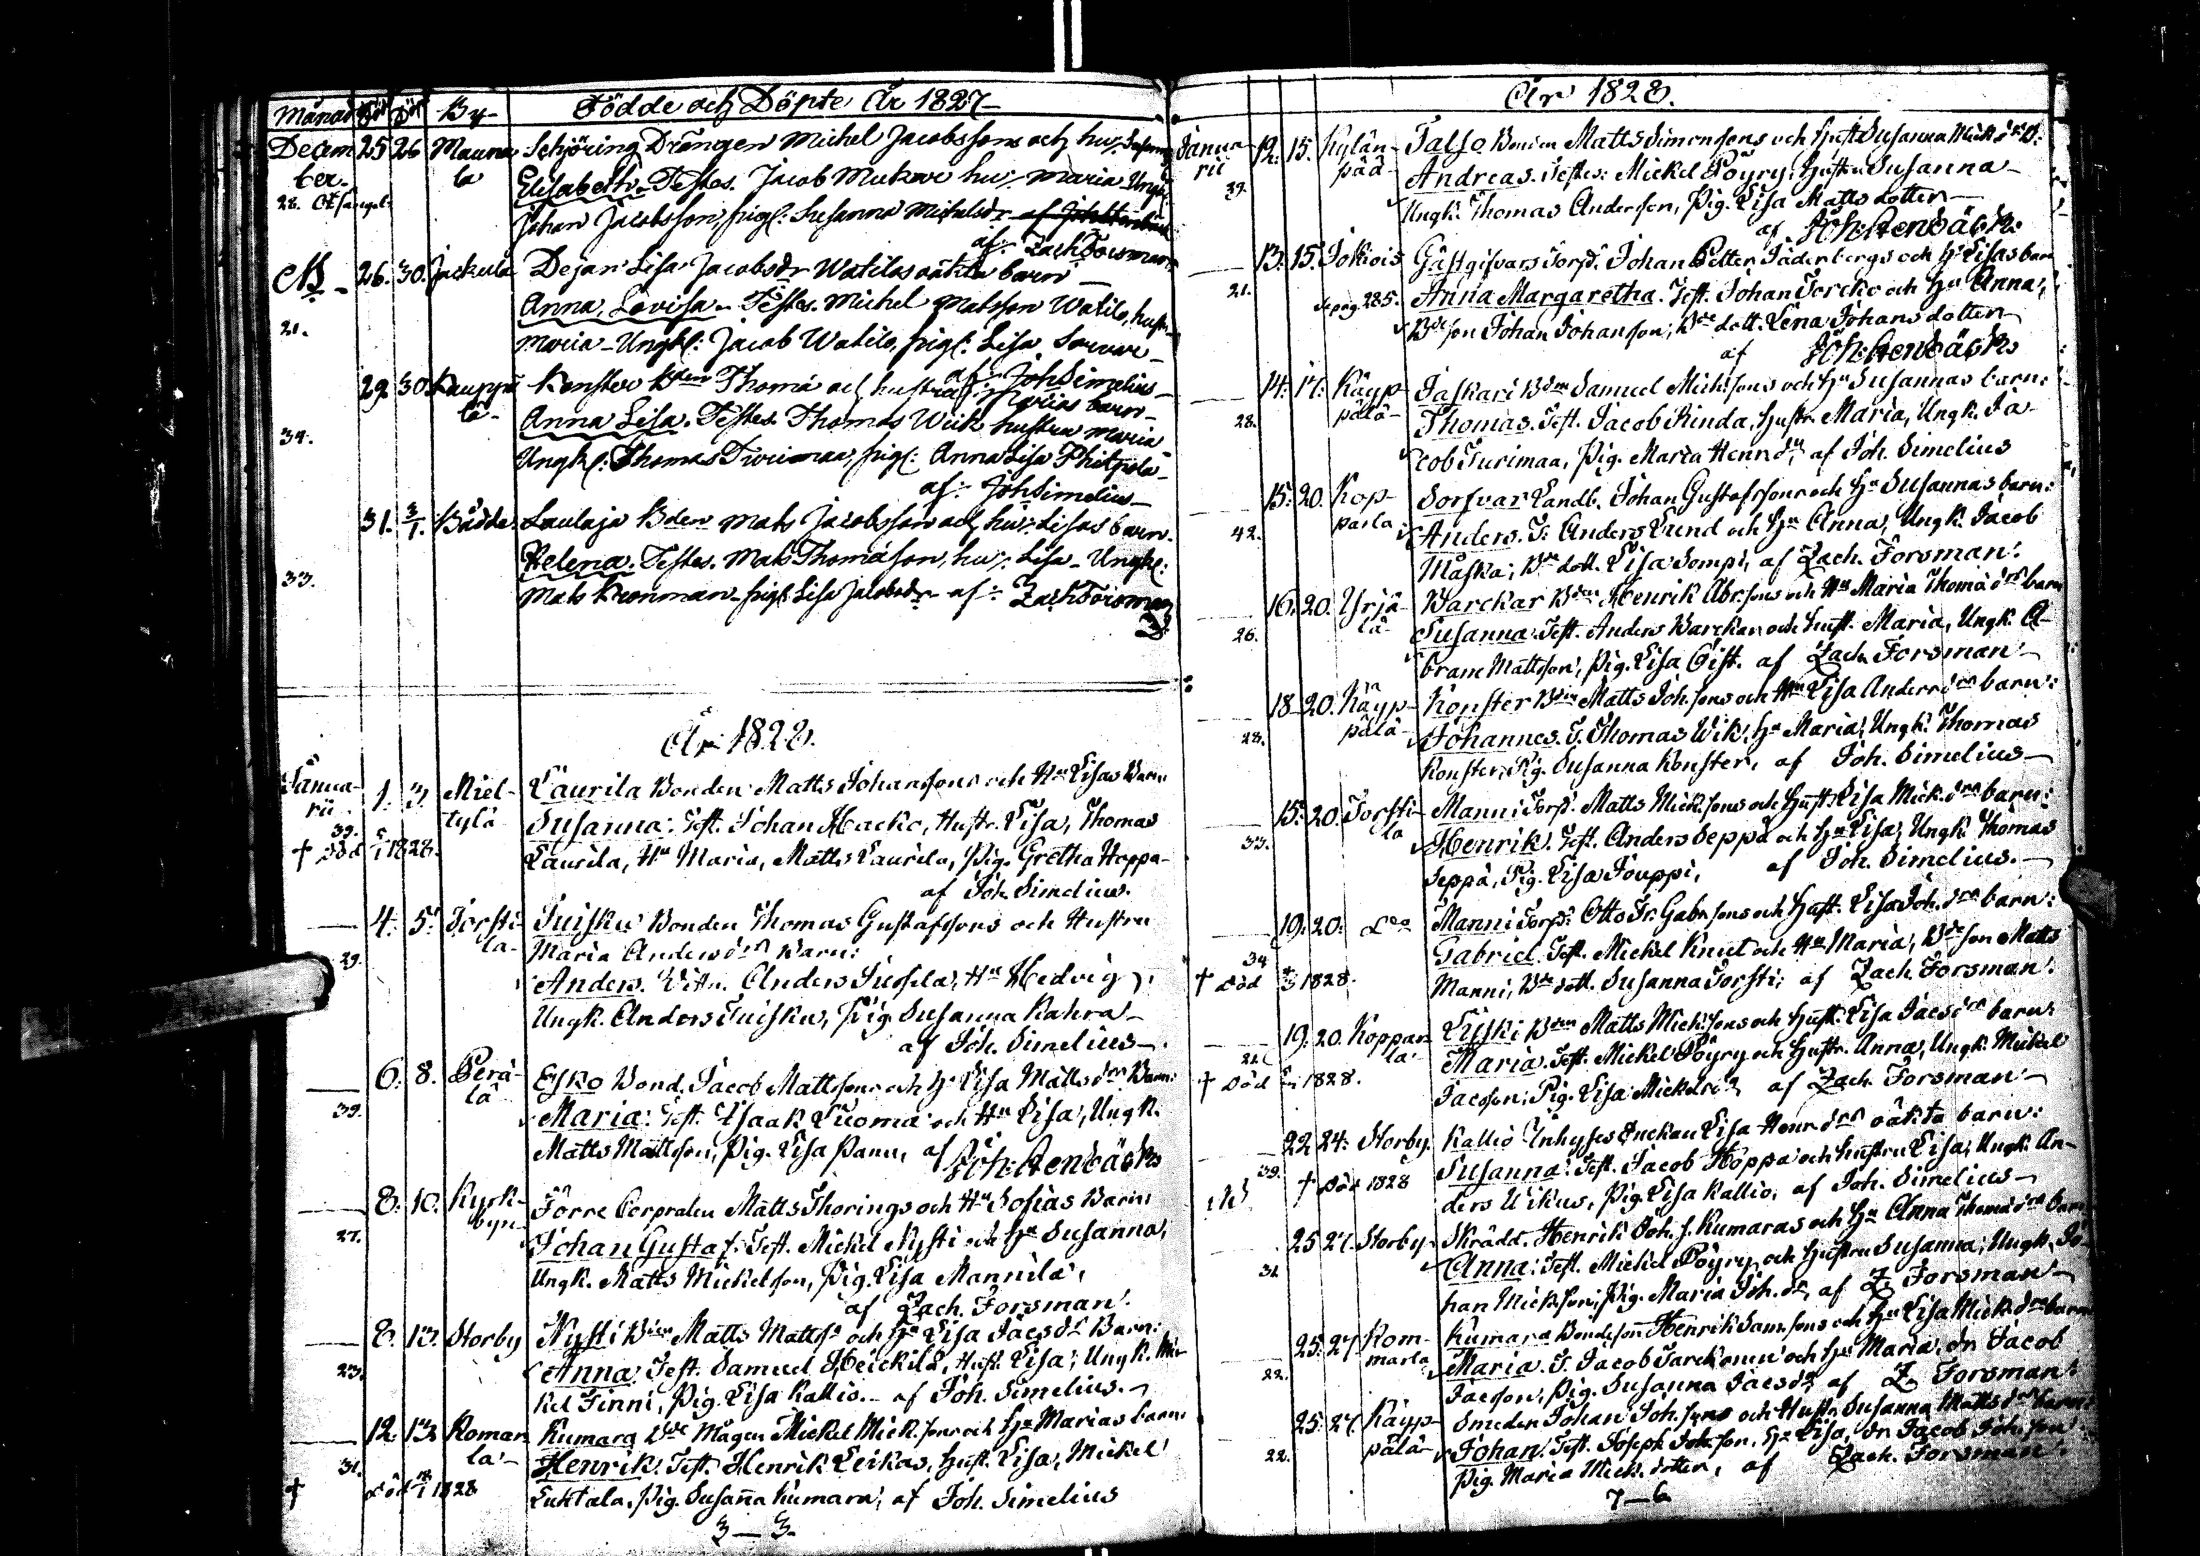 Månad Föd Döp By- Födde och Döpte År 1827-
Decem 25 26 Mauna Schöring Drängen Michel Jacobsson och hu:
ber- la Elisabeth. Testes. Jacob Mukare hu: Maria Ungk:
28. Johan Jacobsson, pigl: Susanna Michelsdr
af: Zach Forsman
26. 30. Jackula Dejan Lisa Jacobsdr Watilas oäkta barn
21. Anna Lovisa. Testes. Michel Matsson Watilo, hustr
Maria - Ungk: Jacob Watilo, pigl: Lisa
af: Joh Simelius-
29 30 Kauppi Konster Bden Thoma och hustru Marias barn-
lä- Anna Lisa. Testes. Thomas Wiik hustru Maria
34. Ungkl: Thomas pigl: Anna Lisa
af: Joh Simelius-
31. 3/1. Bådde Laulaja Bden Mats Jacobsson och hu: Lisas barn.
33. Helena. Testes. Mats Thomasson, hu: Lisa - Ungkl:
Mats Kronman - pigl Lisa Jacobsdr - af: Zach Forsman
År 1828.
Janua- 1. 3. Miel- Laurila Bonden Matts Johanssons och Hu Lisas Barn
rii tylä Susanna: Test. Johan Hacko, Hustr. Lisa, Thomas
39. † död 5/1 1828. Laurila, Hu Maria, Matts Laurila, Pig. Gretha Hoppa-
af Joh. Simelius.
4. 5. Torsti- Tuisku Bonden Thomas Gustafssons och Hustru
la- Maria Andersdrs Barn:
29. Anders. Anders Hu Hedvig,
Ungk. Anders Tuisku, Pig. Susanna Kahra-
af Joh. Simelius-
6. 8. Perä- Esko Bond. Jacob Mattssons och Hu Lisa Matts drs Barn:
lä
39. Maria: Test. Isaak Luoma och Hu Lisa, Ungk.
Matts Mattsson, Pig. Lisa Panu, af Joh: Stenbäck
8. 10. Kyrk- Förre Corpralen Matts Thorings och Hu Sofias Barn:
byn-
27. Johan Gustaf. Test. Mickel Nysti och Hu Susanna,
Ungk. Matts Mickelson, Pig. Lisa Mannila,
af Zach. Forsman.
8. 13. Storby Nysti Bden Matts Matts och Hu Lisa Jacsdr Barn:
23. Anna. Test. Samuel Heickilä, Hust. Lisa, Ungk. Mic-
kel Finni, Pig. Lisa Kallio. - af Joh. Simelius.-
12. 13. Koman Kumara Bde Mågen Mickel Mick. sons och Hu Marias barn:
la-
31. Henrik. Test. Henrik Leikas, Hust. Lisa, Mickel
† död 1828 Luhtala, Pig. Susanna Kumara, af Joh. Simelius
3 - 3.
År 1828.
Janua- 12. 15. Kylän- Talso Bonden Matts Simonssons och Hust Susanna Mick drs B:
rii pää- Andreas. Testes: Mickel Pöyry, Hustru Susanna-
39. Ungk. Thomas Anderson, Pig. Lisa Matts dotter-
af Joh: Stenbäck
13. 15. Jokiois Gästgifvars Torp. Johan Petter Säderbergs och Hu Lisas barn
21. pag. 285. Anna Margaretha. Test. Johan Torcko och Hu Anna,
Bde son Johan Johanson, Bde dott. Lena Johans dotter
af Joh: Stenbäck
14. 17. Käyp- Jaskari Bden Samuel Michsons och Hu Susannas barn:
28. pälä- Thomas. Test. Jacob Rinda, Hustr. Maria, Ungk. Ja-
cob Turimaa, Pig. Maria Henrdr, af Joh. Simelius
15. 20. Kop- Sorfvar Landb. Johan Gustafssons och Hu Susannas barn:
42. parla Anders. T: Anders Lund och Hu Anna, Ungk. Jacob
Måska, Bde dott. Lisa Sompi, af Zach. Forsman.
16. 20. Yrjä- Warckar Bden Henrik Abr. sons och Hu Maria Thoma drs barn
26. lä- Susanna. Test. Anders Warckar och hust. Maria, Ungk. A-
bram Mattsson, Pig. Lisa Öist. af Zach. Forsman-
18. 20. Käyp- Konster Bden Matts Joh. sons och Hu Lisa Anders drs barn:
28. pälä- Johannes. T. Thomas Wik, Hu Maria, Ungk. Thomas
Konster, Pig. Susanna Konster, af Joh. Simelius-
15. 20. Torsti- Manni Torp. Matts Mick. sons och Hust. Lisa Mick. drs barn:
33. la Henrik. Test. Anders Seppä och Hu Lisa, Ungk. Thomas
Seppä, Pig. Lisa Jouppi, af Joh. Simelius.-
19. 20. Do Manni Torp. Otto Fr. Gabr. sons och Hust. Lisa Joh. drs barn:
34 Gabriel. Test. Mickel Knut och Hu Maria, Bde son Matts
† död 1828. Manni, Bde dott. Susanna Torsti, af Zach. Forsman.
19. 20. Koppar- Liiski Bden Matts Mick. sons och Hust. Lisa Jacs drs barn:
la- Maria. Test. Mickel Pöyry och Hustr. Anna, Ungk. Mickel
† död 1828. Jacson, Pig. Lisa Mickelsdr, af Zach. Forsman-
22 24. Storby Kallio Inhyses Enckan Lisa Henr. drs oäkta barn:
39. † död 1828 Susanna. Test. Jacob Hoppa och hustru Lisa, Ungk. An-
ders Pig. Lisa Kallio, af Joh. Simelius-
25 27. Storby Skrädd. Henrik Joh. s. Kumaras och Hu Anna Thoma drs barn
31 Anna: Test. Mickel Pöyry och Hustru Susanna, Ungk. Jo-
han Mickson, Pig. Maria Joh. dr, af Z. Forsman-
25. 27 Kom- Kumara Bondeson Henrik Sam. sons och Hu Lisa Mick. drs barn
22. marla Maria. T. Jacob och Hu Maria, dr. Jacob
Jacson, Pig. Susanna Jacsdr, af Z. Forsman.
25. 27. Käyp- Smeden Johan Joh. sons och Hustr. Susanna Matts drs barn:
22. pälä- Johan. Test. Joseph Joh. son, Hu Lisa, dr. Jacob Joh. son
Pig. Maria Mick. dotter, af Zach. Forsman.
7 - 6